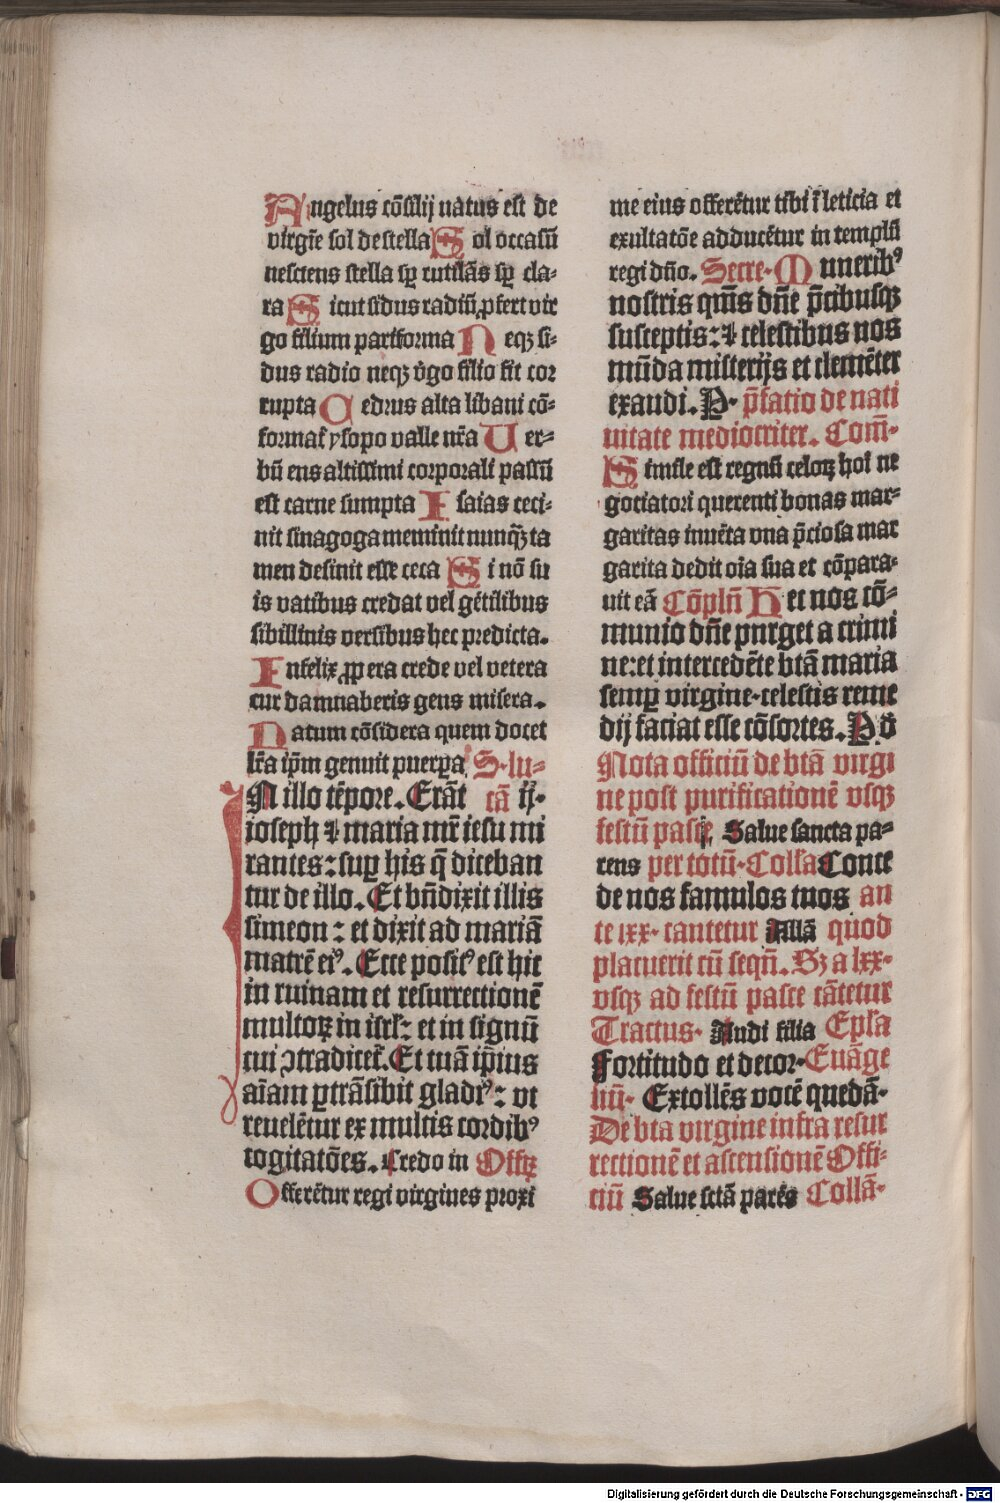 Angelus cōsilij natus est de
virgīe sol de stella Sol occasū
nesciens stella sꝑ rutilās sꝑ cla-
ra Sicut sidus radiū ꝓfert vir
go filium pari forma Neqꝫ si-
dus radio neqꝫ v̄go filio fit cor
rupta Cedrus alta libani cō-
format̄ ysopo valle nr̄a Uer-
bū ens altissimi corporali passū
est carne sumpta Isaias ceci-
nit sinagoga meminit nunqꝫ ta
men desinit esse ceca Si nō su
is vatibus credat vel gētilibus
sibillinis versibus hec predicta.
Infelix ꝓpera crede vel vetera
cur damnaberis gens misera.
Natum cōsidera quem docet
lr̄a ip̄m genuit puerꝑa S. lu-
IN illo tēpore. Erāt cā ij.
ioseph ⁊ maria mr̄ iesu mi
rantes: suꝑ his q̄ diceban
tur de illo. Et bn̄dixit illis
simeon: et dixit ad mariā
matrē eiꝰ. Ecce positꝰ est hic
in ruinam et resurrectionē
multoꝝ in isrl̄: et in signū
cui ↄtradicet̄. Et tuā ip̄ius
aīam ꝑtrāsibit gladiꝰ: vt
reuelētur ex multis cordibꝰ
cogitatōes. Credo in Offꝝ
Offerētur regi virgines proxi
me eius offerētur tibi ī leticia et
exultatōe adducētur in templū
regi dn̄o. Secre. Muneribꝰ
nostris qm̄s dn̄e p̄cibusqꝫ
susceptis: ⁊ celestibus nos
mūda misterijs et clemēter
exaudi. P. p̄fatio de nati
uitate mediocriter. Com̄.
Simile est regnū celoꝝ hoī ne
gociatori querenti bonas mar-
garitas inuēta vna p̄ciosa mar
garita dedit oīa sua et cōpara-
uit eā Cōplū Het nos cō-
munio dn̄e purget a crimi
ne: et intercedēte btā maria
semꝑ virgine. celestis reme
dij faciat esse cōsortes. P d̄
Nota officiū de btā virgi
ne post purificationē vsqꝫ
festū pasce Salue sancta pa-
rens per totū. Coll̄a Conce
de nos famulos tuos an
te lxx. cantetur Allā quod
placuerit cū seqn̄. Sꝫ a lxx.
vsqꝫ ad festū pasce cātetur
Tractus. Audi filia Epl̄a
Fortitudo et decor. Euāge
liū. Extollēs vocē quedā.
De bta virgine infra resur
rectionē et ascensionē Offi-
ciū Salue sctā parēs Collā.
Digitalisierung gefördert durch die Deutsche Forschungsgemeinschaft - DFG